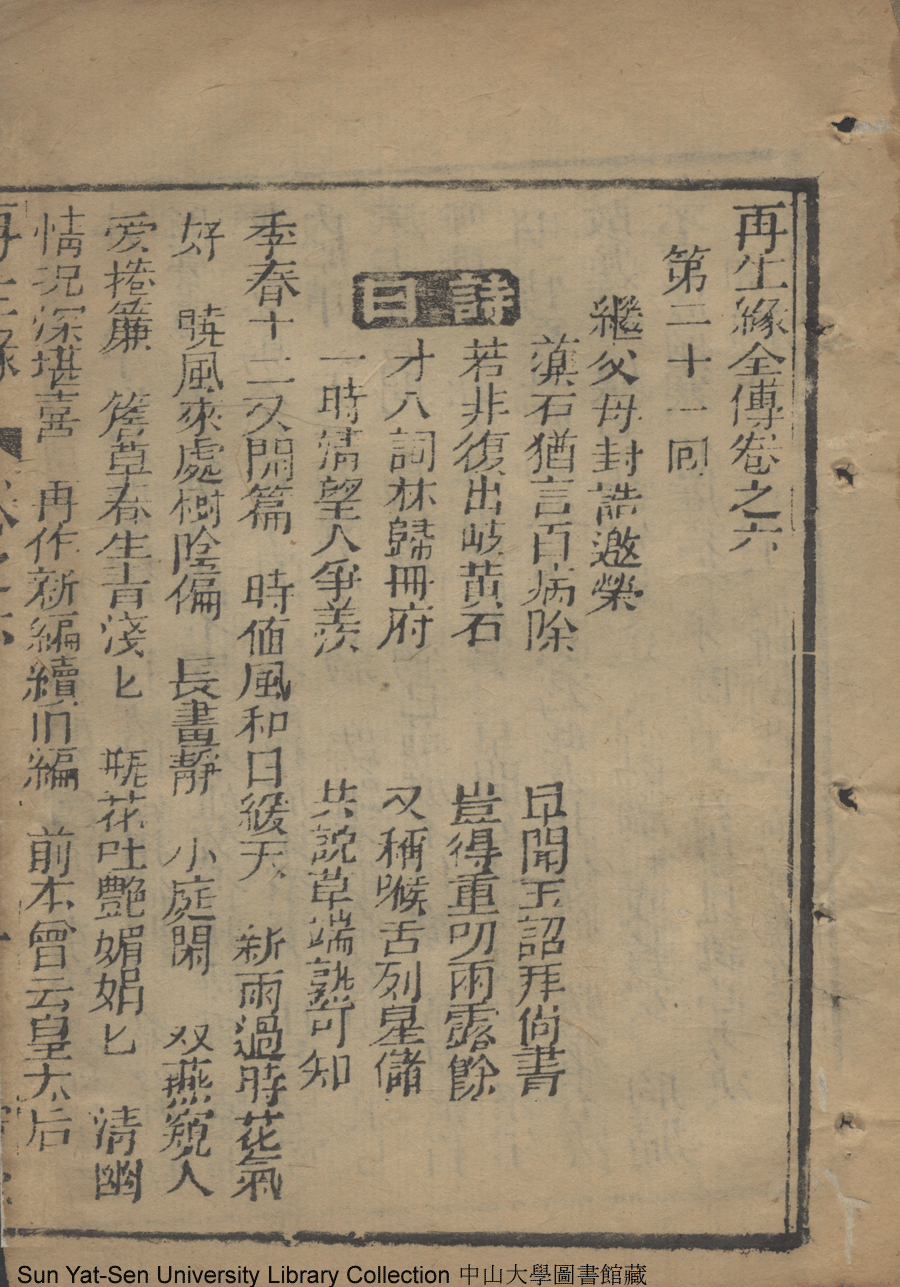 再生緣全傳卷之六
第二十一回
繼父母封誥邀榮
詩曰
藥石猶言百病除 早聞玉詔拜尚書
若非復出岐黄石 豈得重叨雨露餘
才八詞林歸冊府 又稱喉舌列星儲
一時清望人争羨 共説草端孰可知
季春十二又開篇 時值風和日緩天 新雨過時花氣
好 曉風來處樹陰偏 長晝靜 小庭閑 双燕窺人
爱捲簾 簷草春生青淺匕 瓶花吐艷媚娟匕 清幽
情况深堪喜 再作新編續旧編 前本曾云皇太后
再生緣 卷之六
Sun Yat-Sen University Library Collection 中山大學圖書館藏